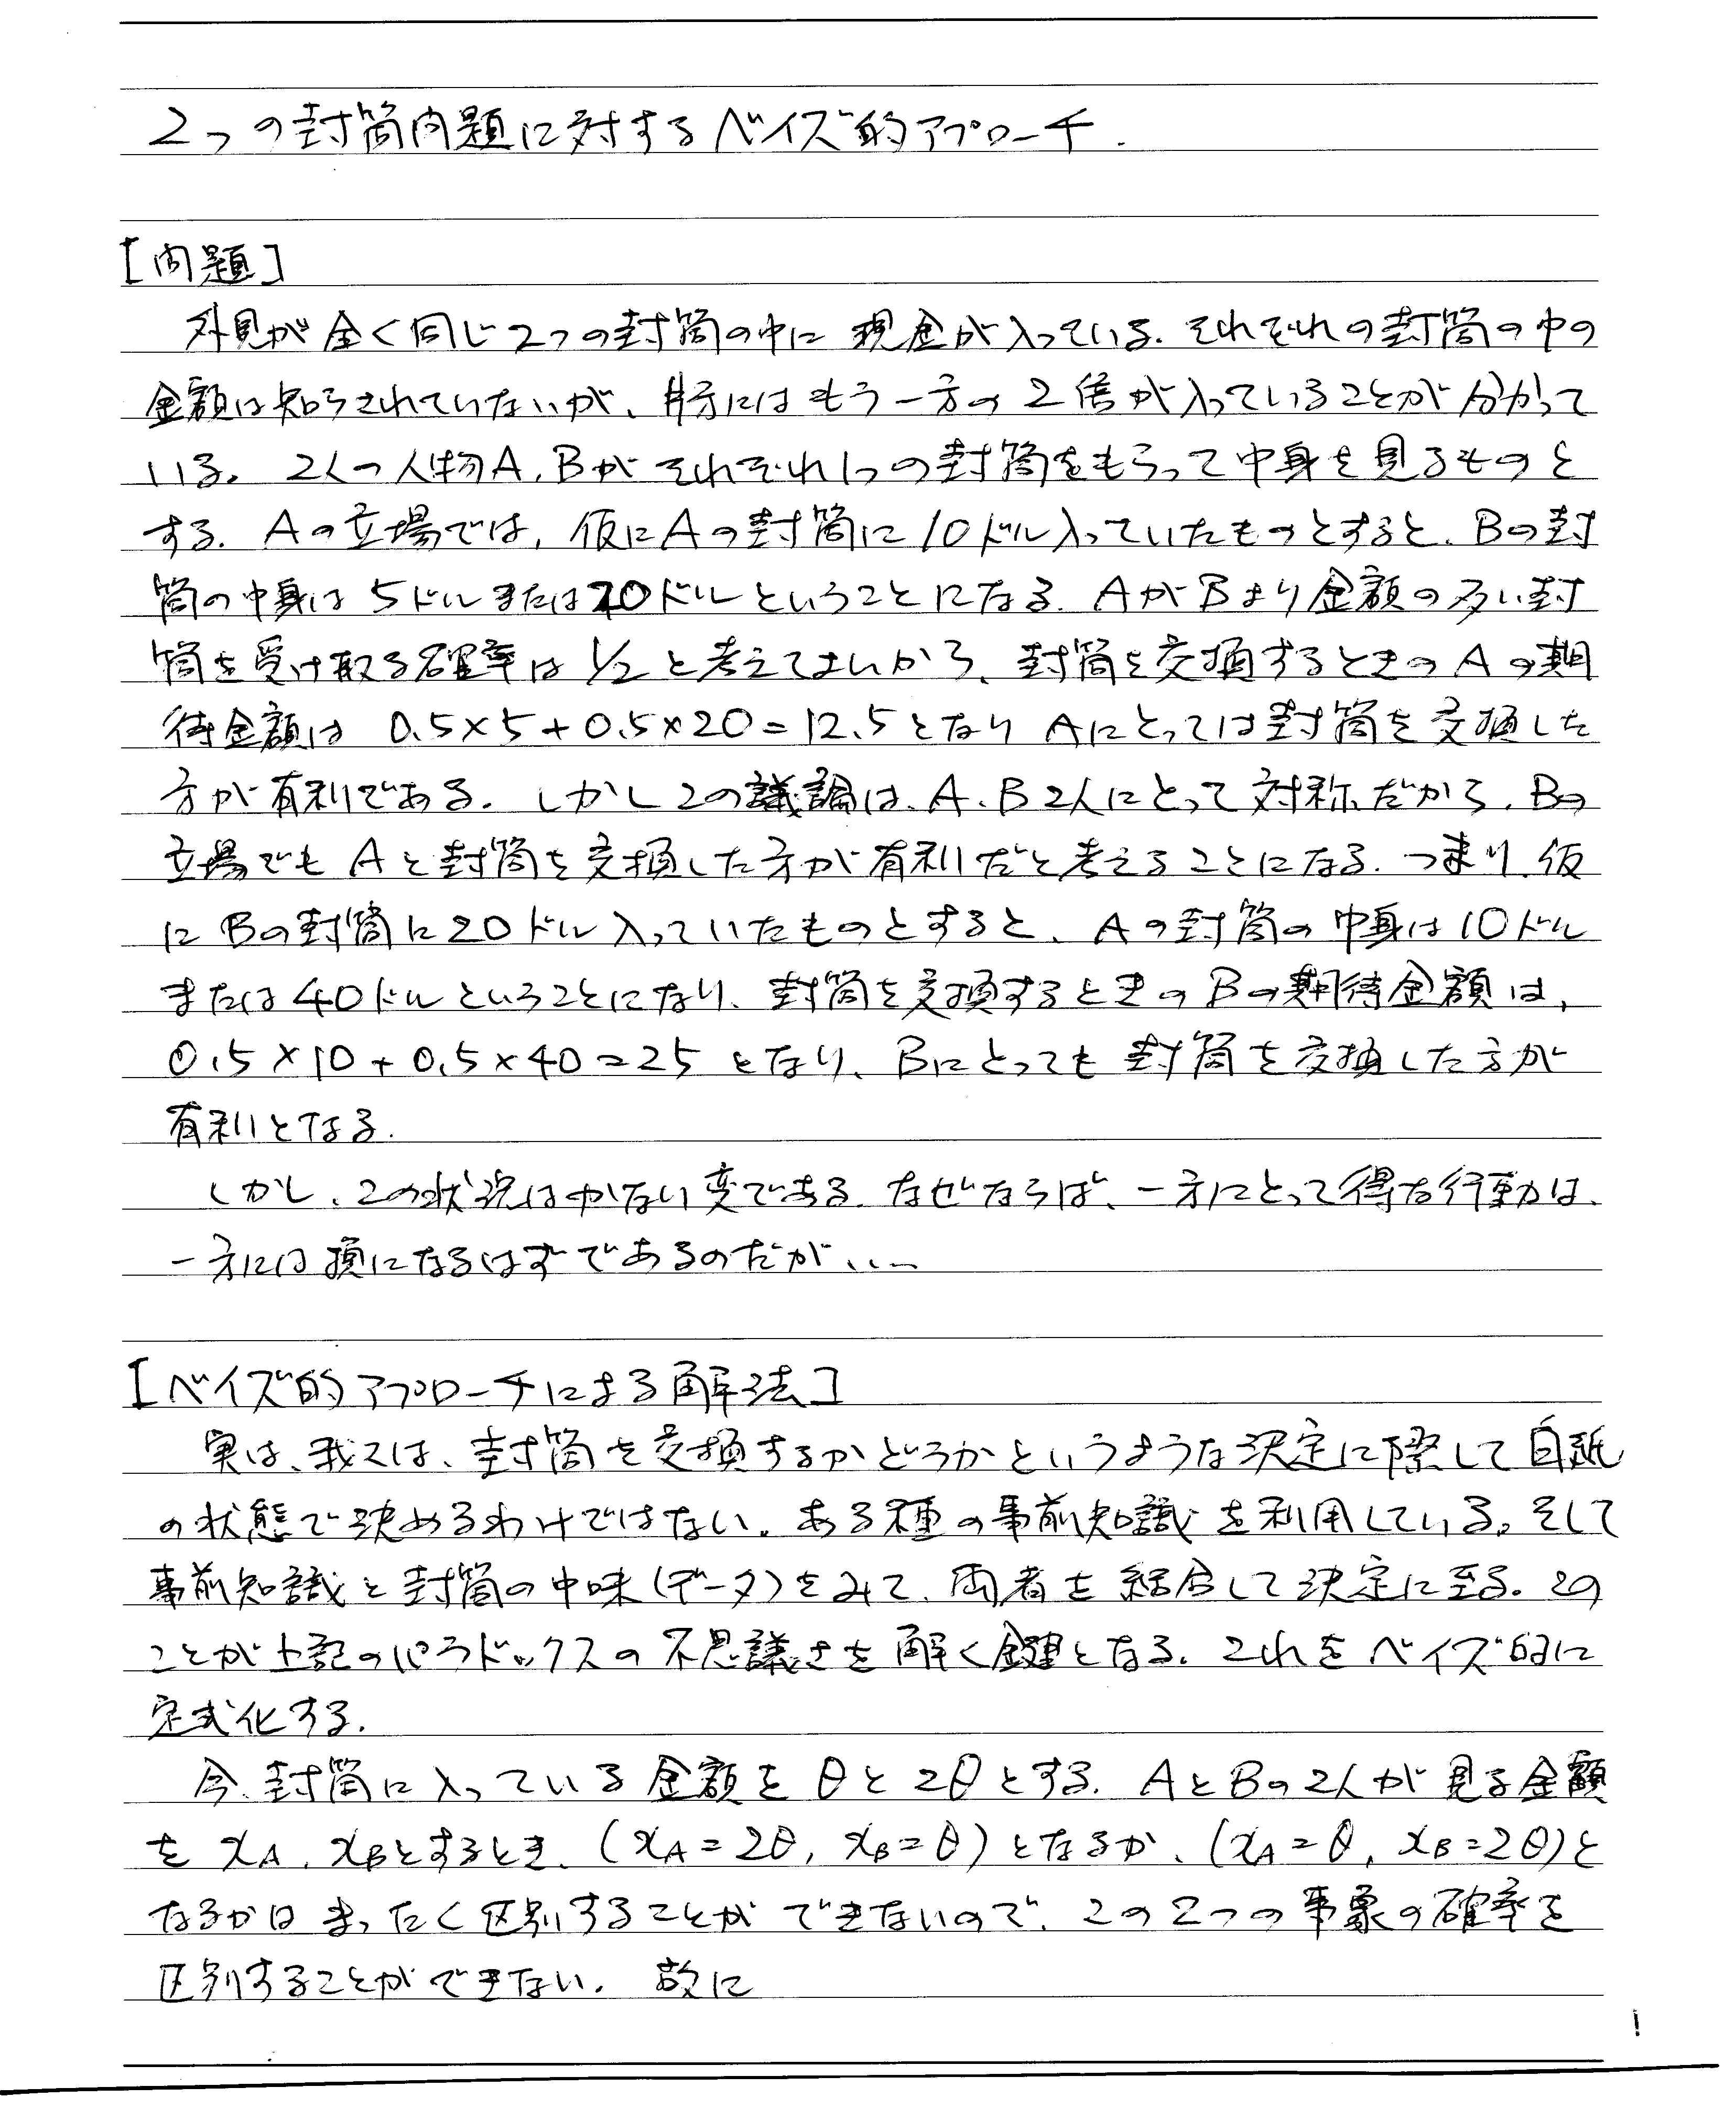 2つの封筒問題に対するベイズ的アプローチ.
[問題]
外見が全く同じ2つの封筒の中に現金が入っている. それぞれの封筒の中の
金額は知らされていないが、片方にはもう一方の2倍が入っていることが分かって
いる. 2人の人物A, Bがそれぞれ1つの封筒をもらって中身を見るものと
する. Aの立場では, 仮にAの封筒に10ドル入っていたものとすると、Bの封
筒の中身は5ドルまたは20ドルということになる. AがBより金額の多い封
筒を受け取る確率は1/2と考えてよいから、封筒を交換するときのAの期
待金額は 0.5×5+0.5×20=12.5となり Aにとっては封筒を交換した
方が有利である. しかしこの議論は、A、B2人にとって対称だから、Bの
立場でもAと封筒を交換した方が有利だと考えることになる. つまり、仮
にBの封筒に20ドル入っていたものとすると、Aの封筒の中身は10ドル
または40ドルということになり、封筒を交換するときのBの期待金額は,
0.5×10+0.5×40=25 となり、Bにとっても封筒を交換した方が
有利となる.
しかし、この状況はかなり変である. なぜならば、一方にとって得な行動は、
一方には損になるはずであるのだが...
[ベイズ的アプローチによる解法]
実は、我々は、封筒を交換するかどうかというような決定に際して白紙
の状態で決めるわけではない. ある種の事前知識を利用している. そして
事前知識と封筒の中味(データ)をみて、両者を結合して決定に至る. この
ことが上記のパラドックスの不思議さを解く鍵となる. これをベイズ的に
定式化する.
今、封筒に入っている金額をθと2θとする. AとBの2人が見る金額
を xA, xBとするとき、(xA=2θ, xB=θ)となるか、(xA=θ, xB=2θ)と
なるかはまったく区別することができないので、この2つの事象の確率を
区別することができない. 故に